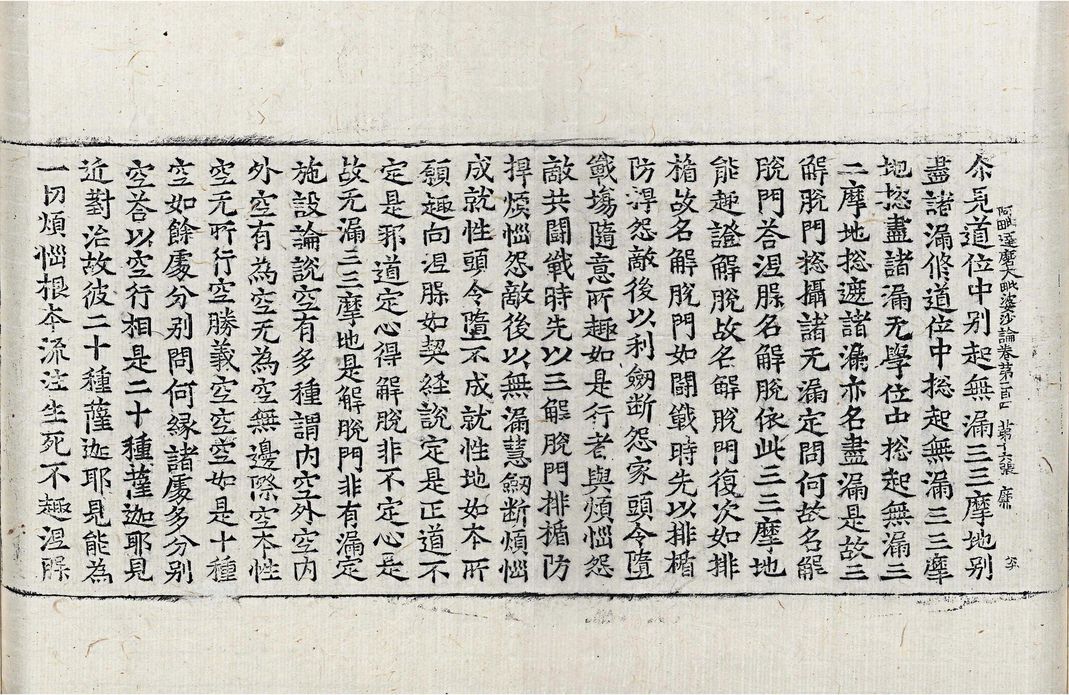 尒見道位中別起無漏三三摩地別
阿毗達磨大毗婆沙論卷第一百四 第十六張
盡諸漏修道位中揔起無漏三三摩
地揔盡諸漏无學位中揔起無漏三
三摩地揔遮諸漏亦名盡漏是故三
解脫門揔攝諸无漏定問何故名解
脫門荅涅槃名解脫依此三三摩地
能趣證解脫故名解脫門復次如排
楯故名解脫門如鬪戰時先以排楯
防捍怨敵後以利劒断怨家頭令墮
戰塲隨意所趣如是行者與煩惱怨
敵共鬪戰時先以三解脫門排楯防
捍煩惱怨敵後以無漏慧劒断煩惱
成就性頭令墮不成就性地如本所
願趣向涅槃如契経說定是正道不
定是邪道定心得解脫非不定心是
故无漏三三摩地是解脫門非有漏定
施設論說空有多種謂內空外空內
外空有為空无為空無邊際空本性
空无所行空勝義空空空如是十種
空如餘處分別問何緣諸處多分別
空荅以空行相是二十種薩迦耶見
近對治故彼二十種薩迦耶見能為
一切煩惱根本流注生死不趣涅槃